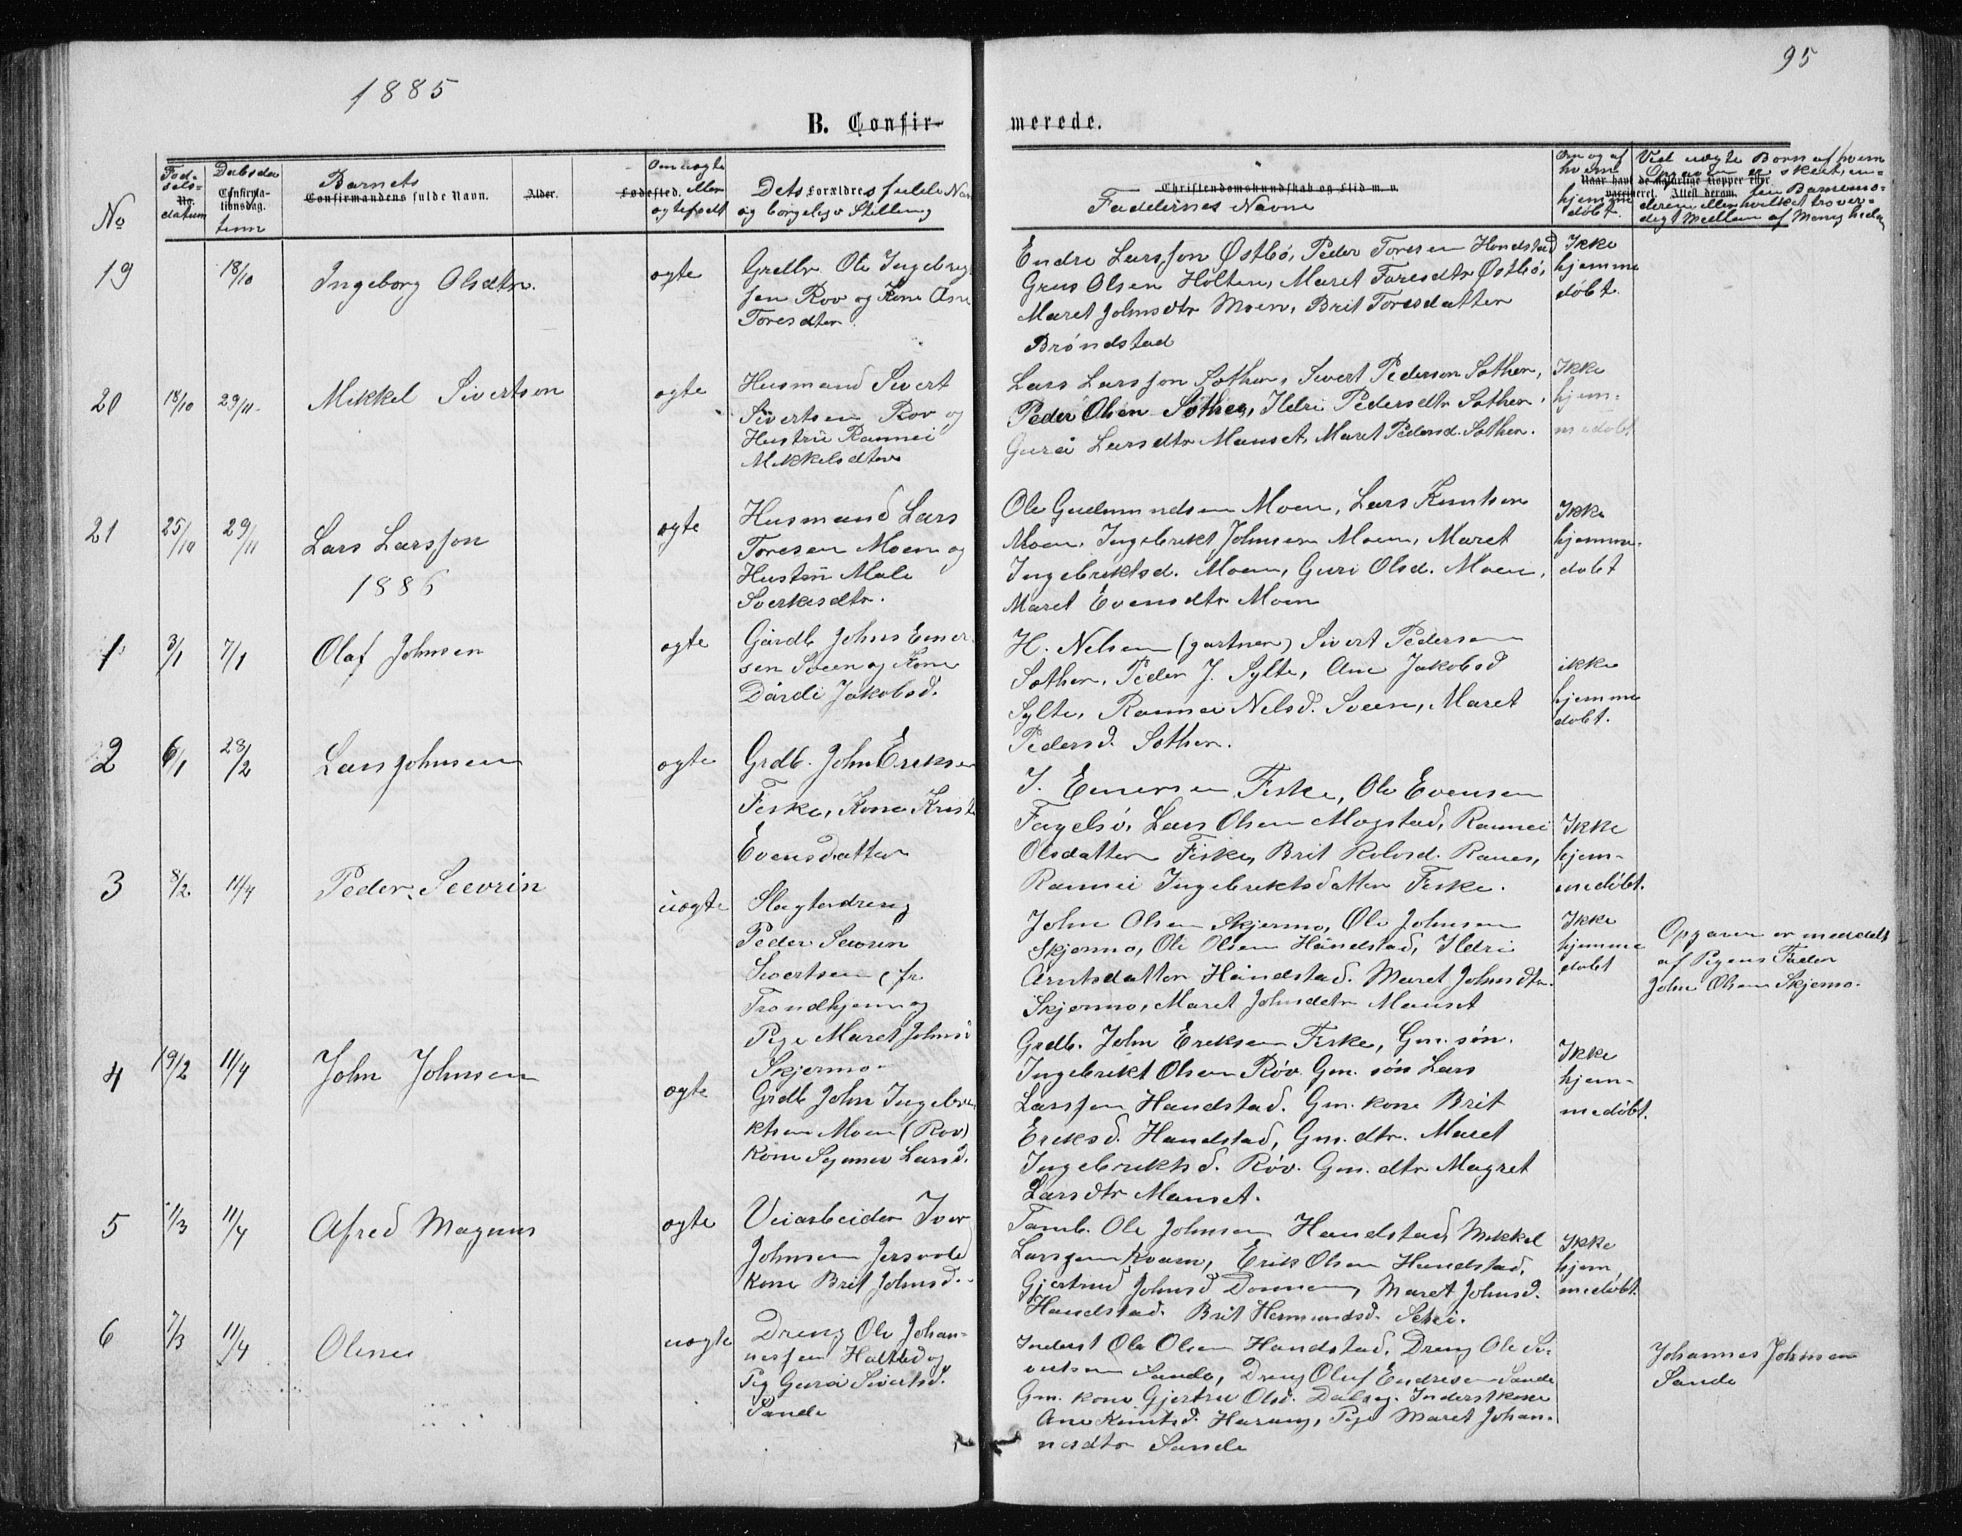 1885
95
B. Confir-
merede.
No
Fød-
sels-
datum
No.
Daabsda-
tum
Confirma-
tionsdag.
Barnets
Confirmandens fulde Navn.
Alder.
Fødested.
Om uægte
eller
ægtefødt
Dets Forældres fulde Navn
og borgelige Stilling
Christendomskundskab og Flid m. v.
Faddernes Navne
Om og af
hvem
hjemme
døbt.
Naar havt de naturlige Kopper eller
vaccineret. Attest derom.
19
18/10
Ingeborg Olsdtr.
ogte
Grdbr. Ole Ingebrig
sen Rov og Kone Ane
Toresdter.
Endre Larsson Østbö, Peder Toresen Handstad
Grus Olsen Holten, Maret Toresdtr Østbö,
Maret Johnsdtr Moen, Brit Toresdatter
Bröndstad
Ikke
hjemme
døbt.
20
18/10
29/11.
Mikkel Sivertsen
ogte
Husmand Sivert
Sivertsen Rov og
Hustru Rannei
Mikkelsdter
Lars Larsson Sother, Sivert Pederson Sother,
Peder Olsen Sother, Ildri Pedersdtr Sother,
Guræ Larsdtr Manset, Maret Pedersd. Sother.
Ikke
hjem-
medøbt
21
25/10
29/11
Lars Larsson
ogte
Husmand Lars
Toresen Moen og
Hustru Male
Sverkesdtr.
Ole Gudmundsen Moen, Lars Knutsen
Moen, Ingebrikt Johnsen Moen, Maret
Ingebriktsd. Moen, Guri Olsd. Moen,
Maret Evensdtr Moen
Ikke
hjemme-
døbt
1886
1
3/1
7/1
Olaf Johnsen
ogte
Gårdb. Johns Einer-
sen Sveen og Kone
Dårdi Jakobsd.
H. Nelsen (gartner) Sivert Pedersen
Sother, Peder J. Sylte, Ane Jakobsd
Sylte, Rannei Nelsd. Sveen, Maret
Pedersd. Sother.
ikke
hjemme
døbt.
2
6/1
28/2
Lars Johnsen
ogte
Grdb. John Eriksen
Fiske, Kone Krist
Evensdatter
J. Einersen Fiske, Ole Evensen
Fagelsö, Lars Olsen Mogstad, Rannei
Olsdatter Fiske, Brit Rolvsd. Ranes,
Rannei Ingebriktsdatter Fiske.
Ikke
hjem-
medøbt.
3
8/2
11/4
Peder Seevrin
uogte
Slagterdreng
Peder Sevrin
Sivertsen (fr.
Trondhjem og
Pige Maret Johnsd
Skjermo
John Olsen Skjermo, Ole Johnsen
Skjermo, Ole Olsen Håndstad, Ildri
Arntsdatter Håndstad. Maret Johnsdtr.
Skjermo, Maret Johnsdtr Manset
Ikke
hjemme
døbt
Opgaven er meddelt
af Pigens Fader
John Olsen Skjermo.
4
19/2
11/4
John Johnsen
ogte
Grdb John Ingebri
ktsen Moen (Rov)
Kone Synnev Larsd.
Grdb. John Eriksen Fiske, Gm. søn.
Ingebrikt Olsen Røv. Gm. søn Lars
Larssen Handstad. Gm. kone Brit
Eriksd. Handstad, Gm. dtr. Maret
Ingebriktsd. Røv. Gm. dtr Magret
Larsdtr Manset.
Ikke
hjem-
medøbt.
5
1/3
11/4
Afred Magnus
ogte
Veiarbeider Iver
Johnsen Jersvold
kone Brit Johnsd.
Tamb. Ole Johnsen Handstad, Mikkel
Larsen Kvam, Erik Olsen Handstad,
Gjertrud Johnsd Donnem, Maret Johnsd.
Handstad. Brit Hermundsd. Setri.
Ikke
hjem
medøbt.
6
7/3
11/4
Oline
uogte
Dreng Ole Johan-
nesen Holtbog
Pig Gurei Sivertsd.
Sande
Inderst Ole Olsen Handstad, Dreng Ole Si-
vertsen Sande, Dreng Oluf Endresen Sande
Gm. kone Gjertru Olsd. Dalseg. Inderstkone
Ane Knutsd. Harang, Pige Maret Johan-
nesdtr Sande
Johannes Johnsen
Sande